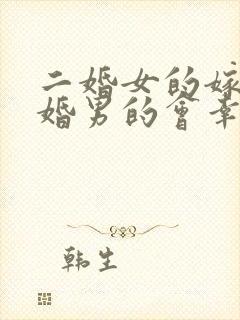 二婚女的嫁
婚男的會幸
韩生